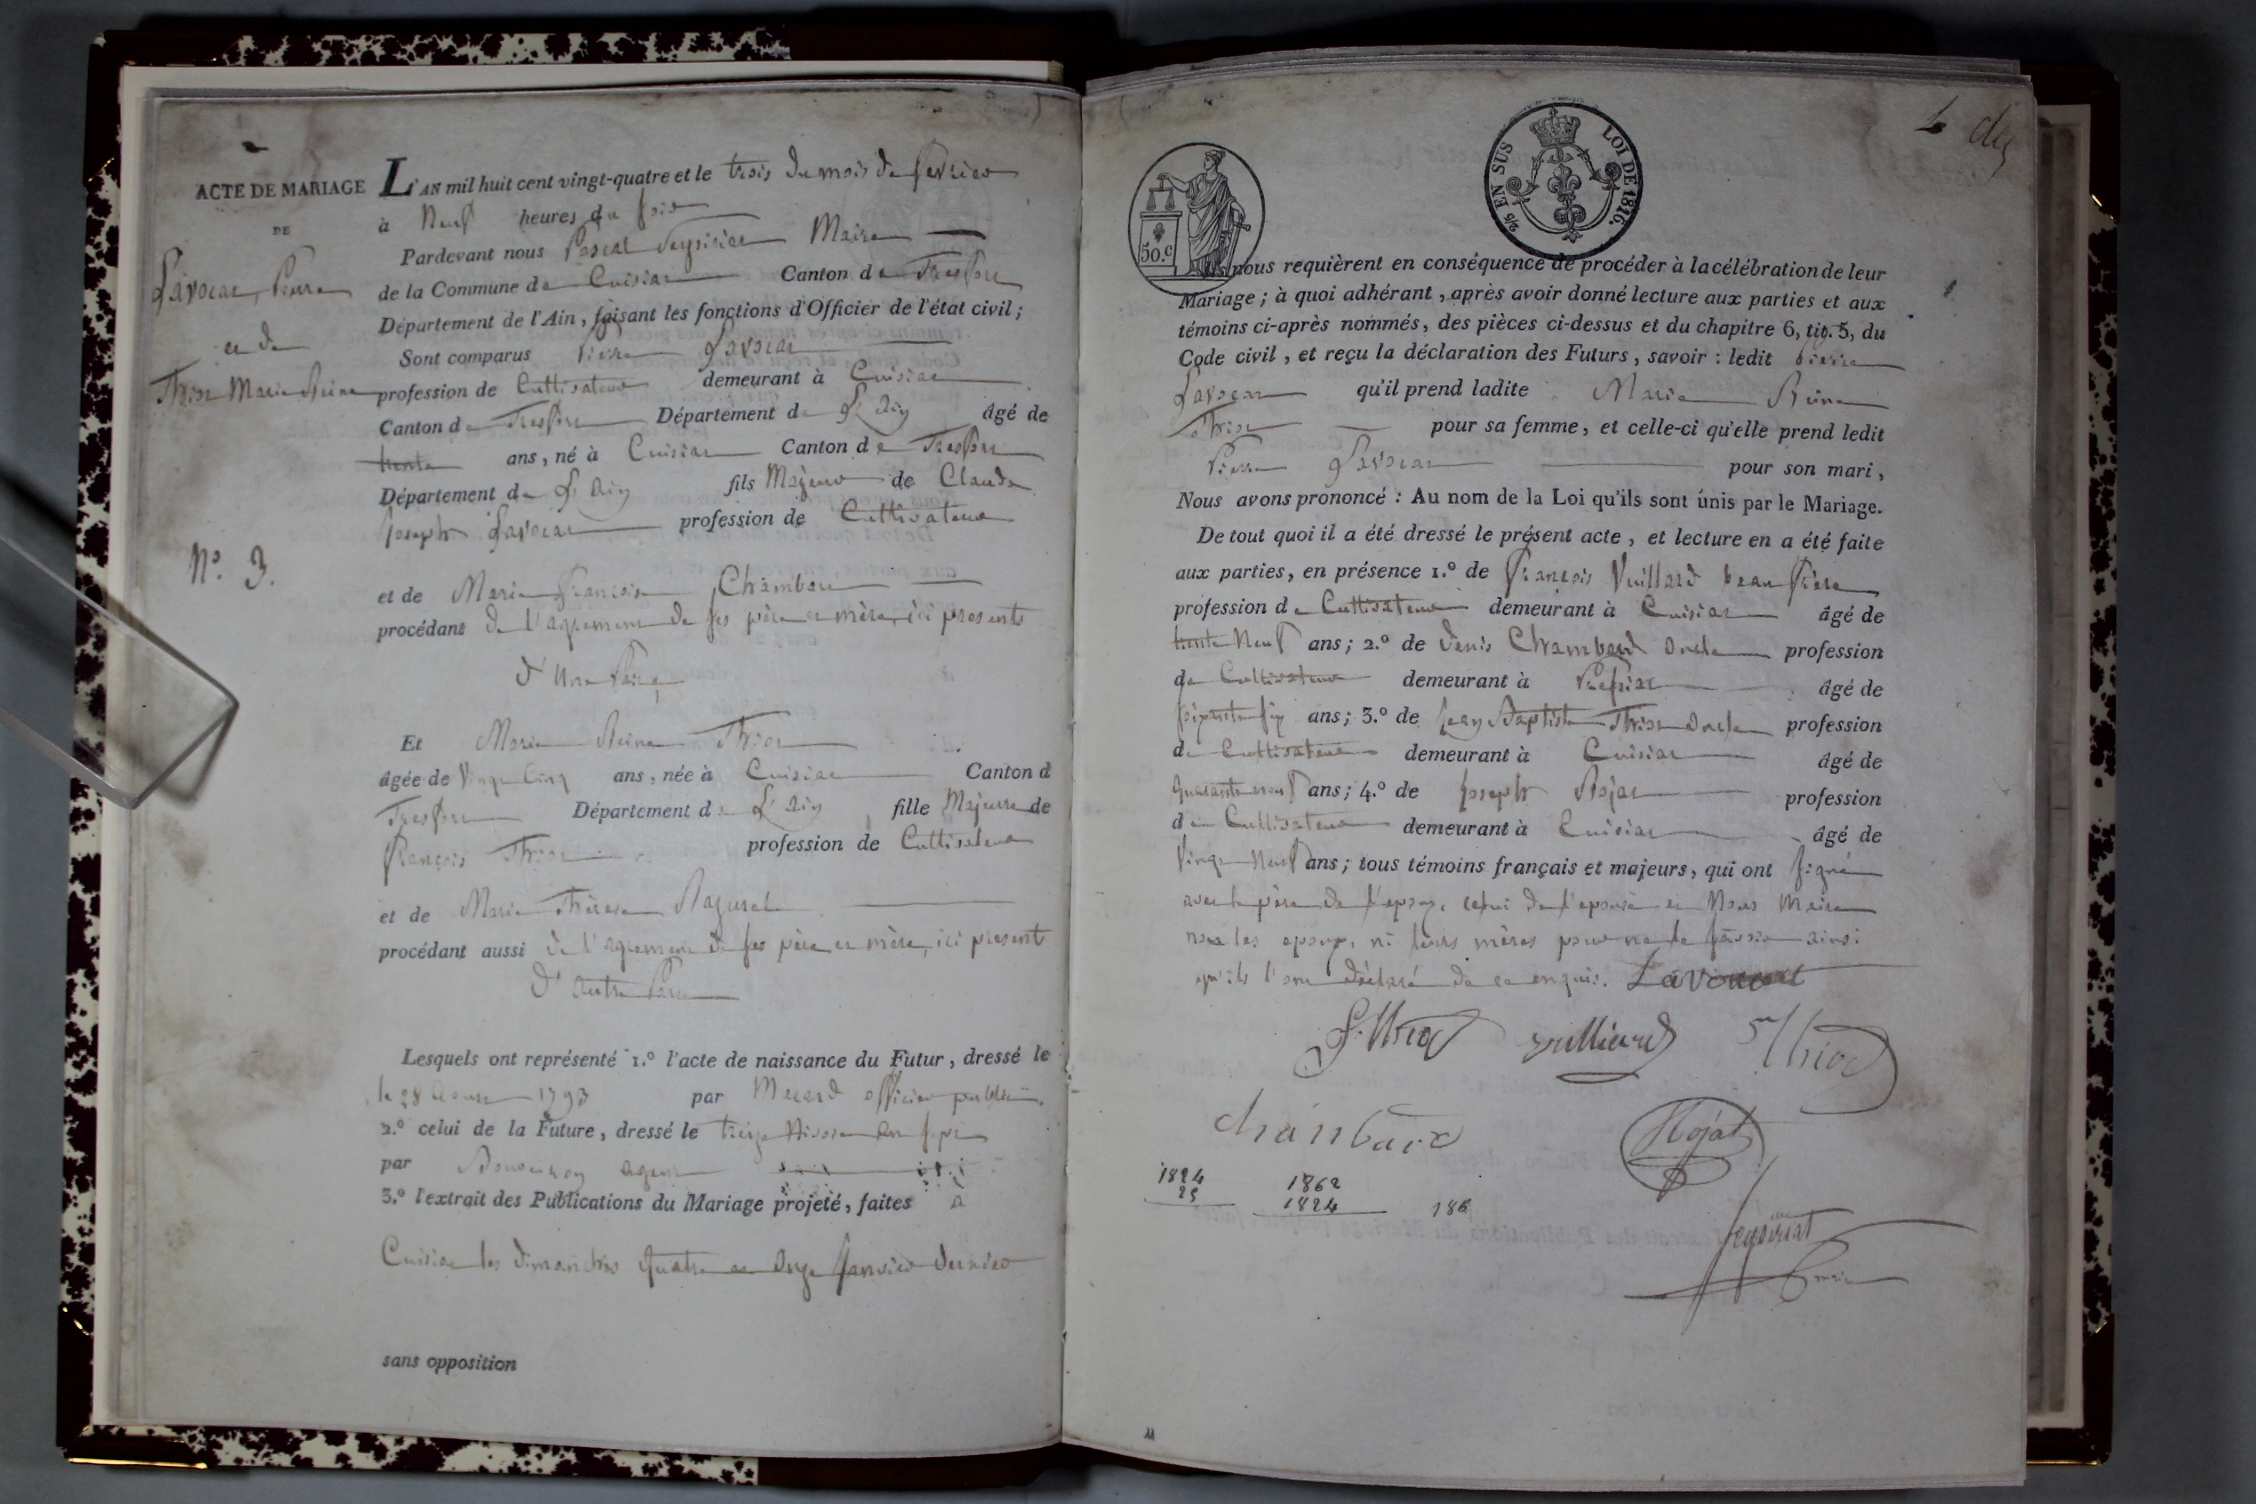 ACTE DE MARIAGE
DE
Lavocat Pierre
et de
Thiot Marie Reine
N.º 3.
L'AN mil huit cent vingt-quatre et le trois du mois de fevrier
à Neuf heures du soir
Pardevant nous Pascal Peysiriat Maire
de la Commune de Cuisiat Canton de Treffort
Département de l'Ain, faisant les fonctions d'Officier de l'état civil;
Sont comparus Pierre Lavocat
profession de Cultivateur demeurant à Cuisiat
Canton de Treffort Département de L'Ain âgé de
trente ans, né à Cuisiat Canton de Treffort
Département de L'Ain fils Majeur de Claude
Joseph Lavocat profession de Cultivateur
et de Marie Françoise Chambard
procédant de l'agrement de ses père et mère, ici presents
d'Une Part,
Et Marie Reine Thiot
âgée de Vingt Cinq ans, née à Cuisiat Canton d
Treffort Département de L'Ain fille Majeure de
François Thiot profession de Cultivateur
et de Marie Thérese Razurel
procédant aussi de l'agrement de ses père et mère, ici present
D'autre Part
Lesquels ont représenté 1.º l'acte de naissance du Futur, dressé le
le 28 Aoust 1793 par officier public
2.º celui de la Future, dressé le treize Nivose an sept
par agent
3.º l'extrait des Publications du Mariage projeté, faites à
Cuisiat les dimanches Quatre et Onze Janvier dernier
sans opposition
4
50.c
2/5 EN SUS LOI DE 1816.
nous requièrent en conséquence de procéder à la célébration de leur
Mariage; à quoi adhérant, après avoir donné lecture aux parties et aux
témoins ci-après nommés, des pièces ci-dessus et du chapitre 6, tit. 5, du
Code civil, et reçu la déclaration des Futurs, savoir : ledit Pierre
Lavocat qu'il prend ladite Marie Reine
Thiot pour sa femme, et celle-ci qu'elle prend ledit
Pierre Lavocat pour son mari,
Nous avons prononcé : Au nom de la Loi qu'ils sont únis par le Mariage.
De tout quoi il a été dressé le présent acte, et lecture en a été faite
aux parties, en présence 1.º de François Vuillard beau frère
profession de Cultivateur demeurant à Cuisiat âgé de
trente Neuf ans; 2.º de Denis Chambard Oncle profession
de Cultivateur demeurant à Pressiat âgé de
soixante six ans; 3.º de Jean Baptiste Thiot Oncle profession
de Cultivateur demeurant à Cuisiat âgé de
Quarante neuf ans; 4.º de Joseph Rojat profession
de Cultivateur demeurant à Cuisiat âgé de
Vingt Neuf ans; tous témoins français et majeurs, qui ont signé
avec le père de l'epoux, celui de l'epouse et Nous Maire
non les epoux, ni leurs mères pour ne le savoir ainsi
qu'ils l'ont déclaré de ce enquis. Lavoucat
F. Thiot vuilliard Thiod
chambard Rojat
1824
25
1862
1824
186
Peysiriat
maire